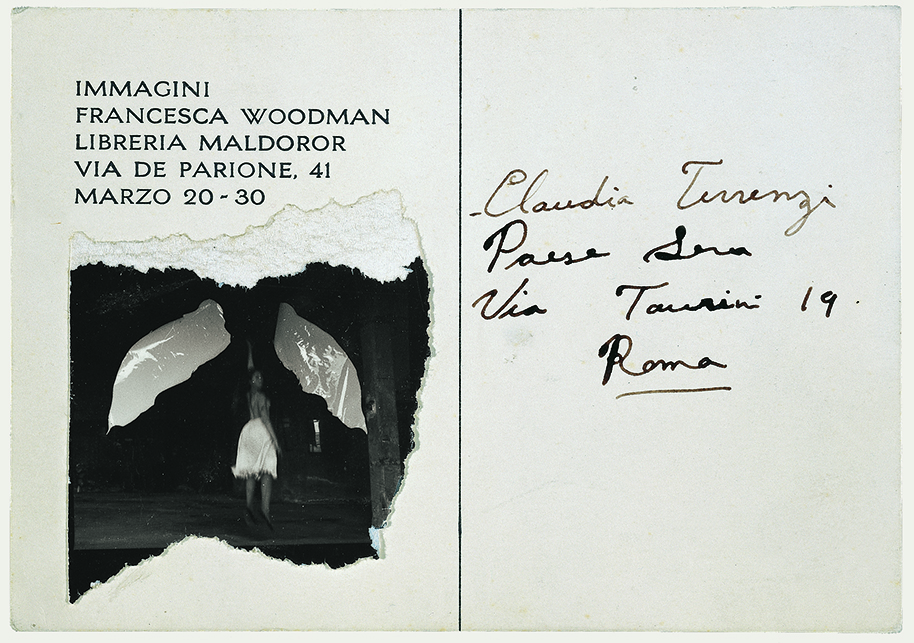 IMMAGINI
FRANCESCA WOODMAN
LIBRERIA MALDOROR
VIA DE PARIONE, 41
MARZO 20-30
Claudia Terrenzi
Paese Sera
Via Taurini 19.
Roma